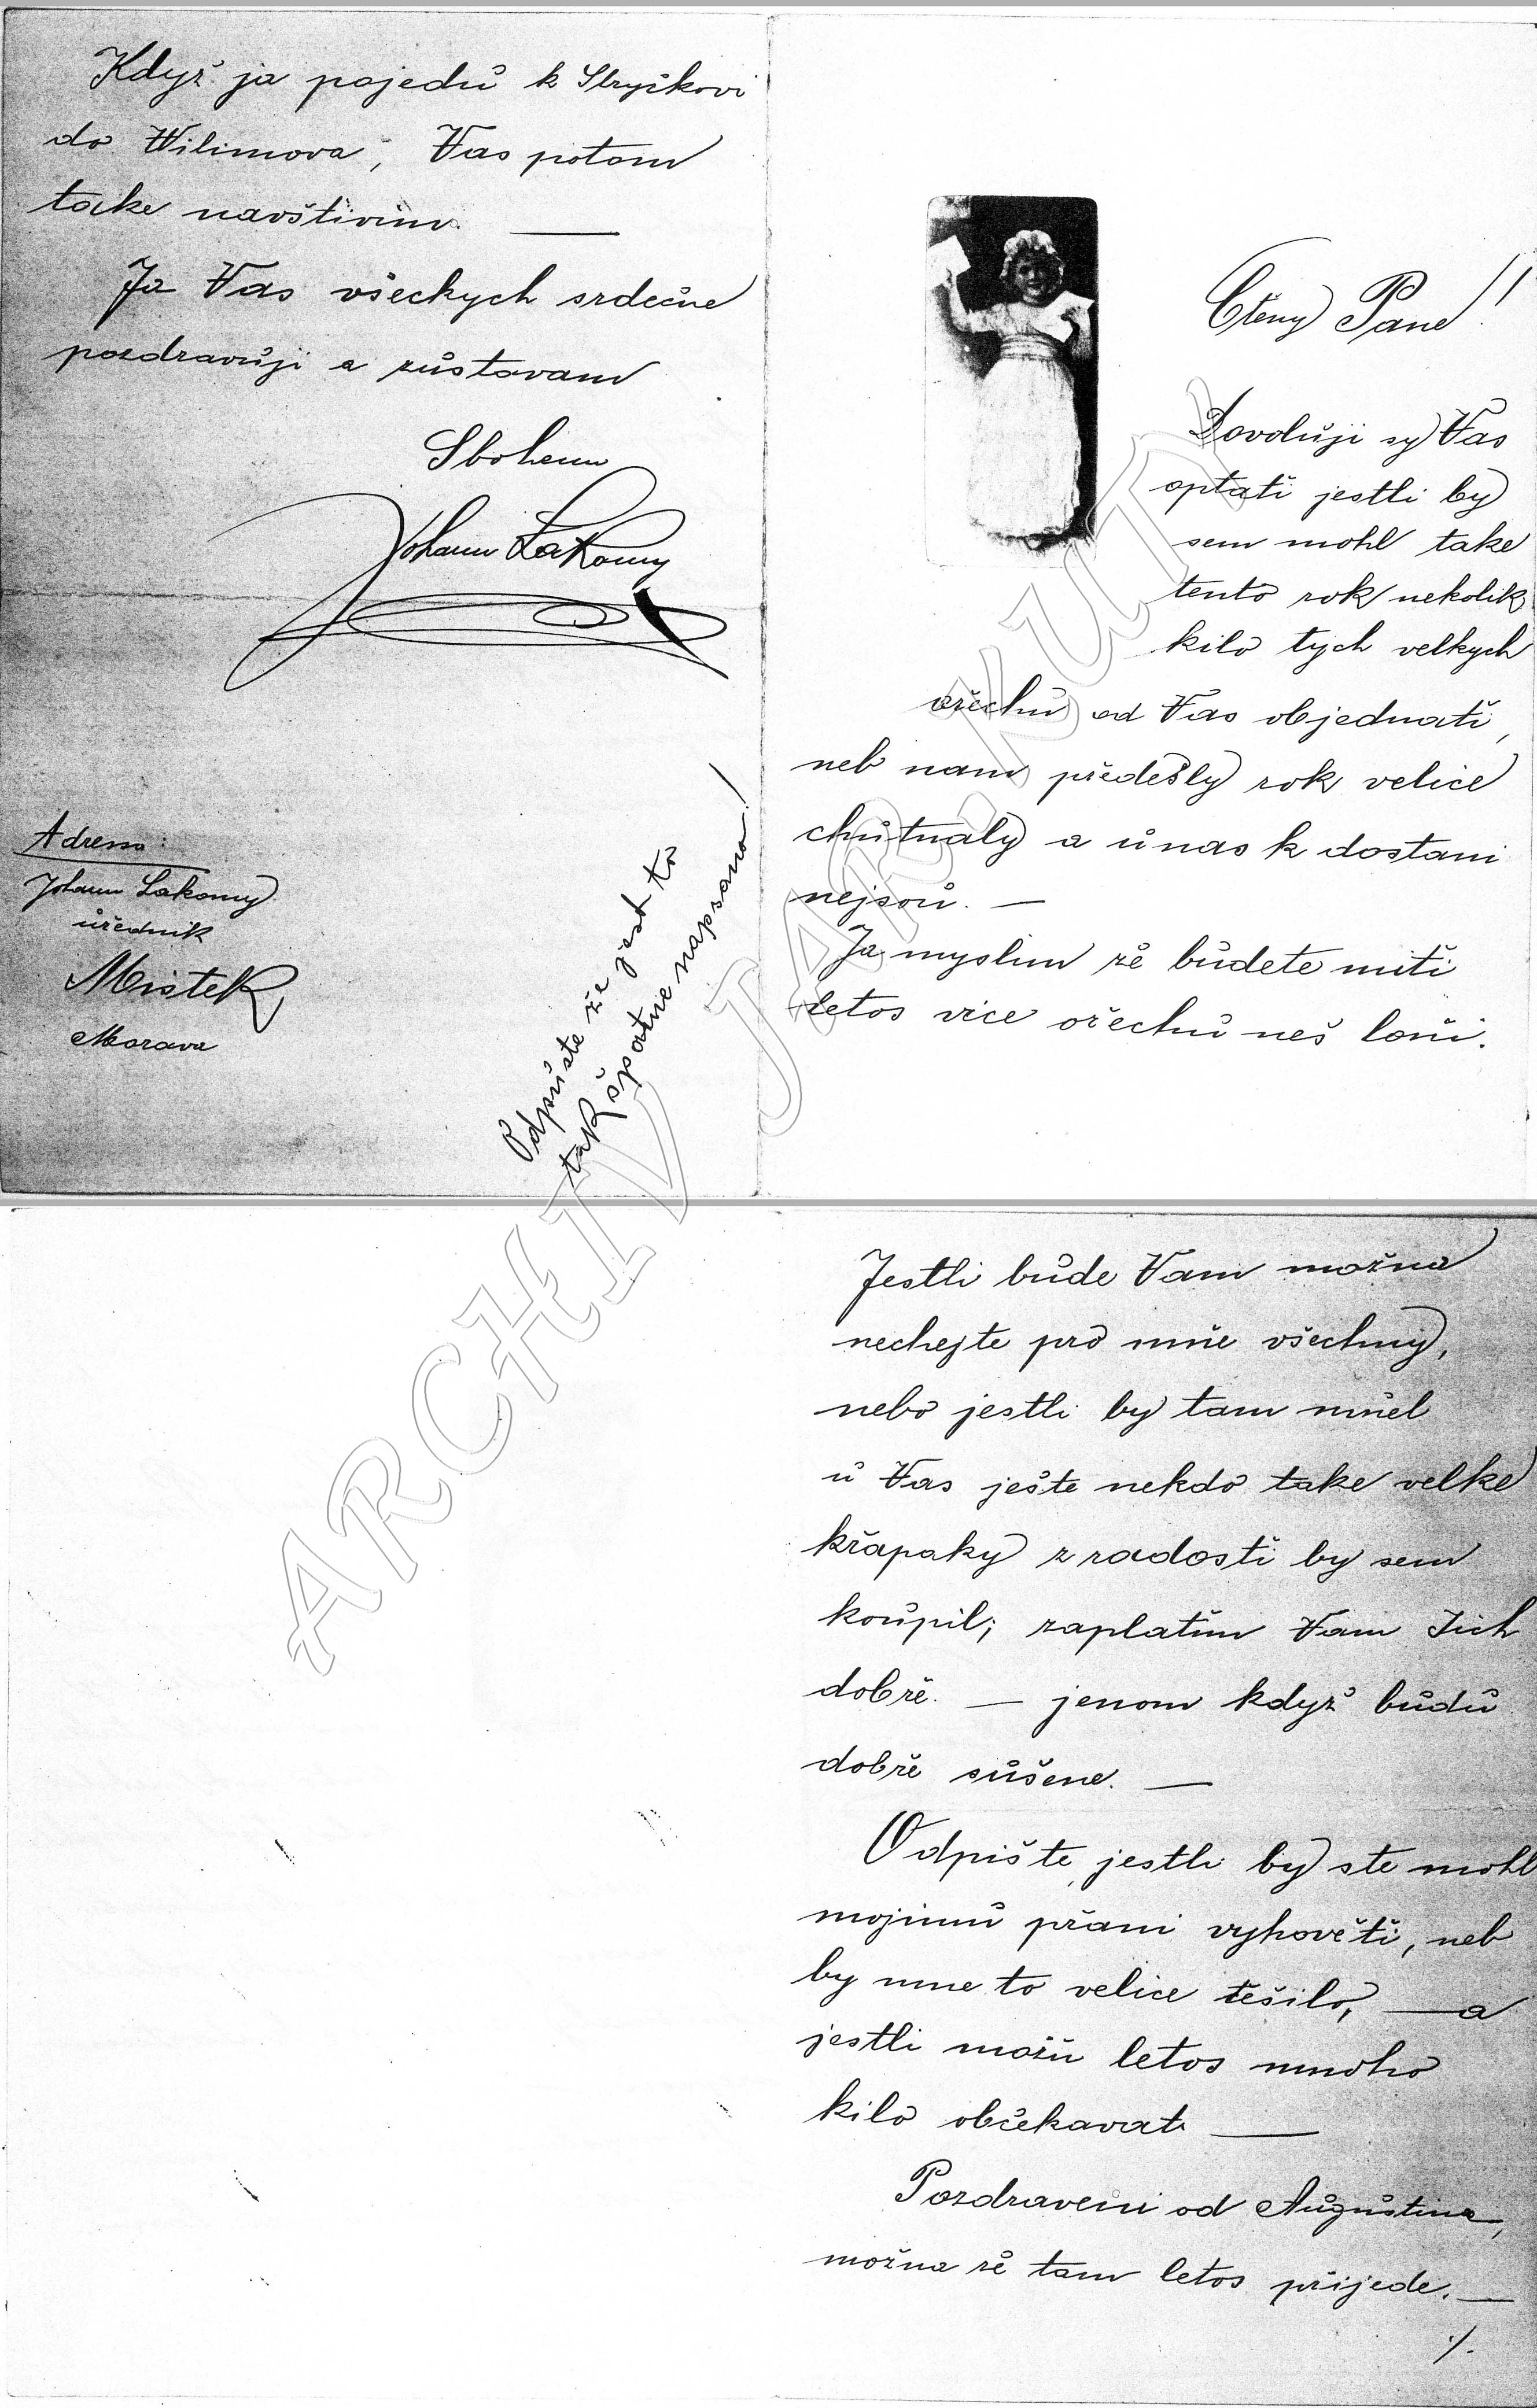 Čtěny Pane!
Dovolůji sy Vas
optati jestli by
sem mohl take
tento rok nekolik
kilo tych velkych
ořechů od Vas objednati,
neb nam předešly rok velice
chůtnaly a ů nas k dostani
nejsoů. —
Ja myslim zě bůdete miti
letos vice ořechů neš loni.
Jestli bůde Vam možna
nechejte pro mňe všechny,
nebo jestli by tam mňel
ů Vas ješte nekdo take velke
křapaky z radosti by sem
koůpil; zaplatim Vam Jich
dobřě. — jenom když bůdů
dobřě sůšene. —
Odpište, jestli by ste mohl
mojimů přani vyhověti, neb
by mne to velice těšilo, — a
jestli možů letos mnoho
kilo občekavat. —
Pozdraveni od Aůgůstina,
možna zě tam letos přijede. —
./.
Když ja pojedů k Stryčkovi
do Wilimova, Vas potom
take navštivim. —
Ja Vas všeckych srdečne
pozdravůji a zůstavam
Sbohem
Johann Lakomy
Adressa:
Johann Lakomy
ůřednik
Mistek
Morava
Odpůste že jest to
tak špatne napsano!
ARCHIV JAR. KUTY